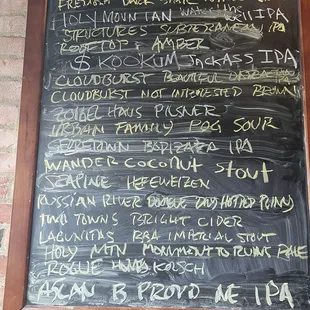 HOLY MOUNTAIN WATER THE HILL IPA
STRUCTURES SUBTERRANEAN IPA
ROOFTOP AMBER
SKOOKUM JACKASS IPA
CLOUDBURST BEAUTIFUL
CLOUDBURST NOT INTERESTED BROWN
ZOIGLHAUS PILSNER
URBAN FAMILY POG SOUR
IPA
WANDER COCONUT STOUT
SCAPINE HEFEWEIZEN
RUSSIAN RIVER PLINY
TWO TOWNS BRIGHT CIDER
LAGUNITAS IMPERIAL STOUT
HOLY MTN MONUMENT TO RUINS PALE
ROGUE KOLSCH
ASLAN B PROUD NE IPA